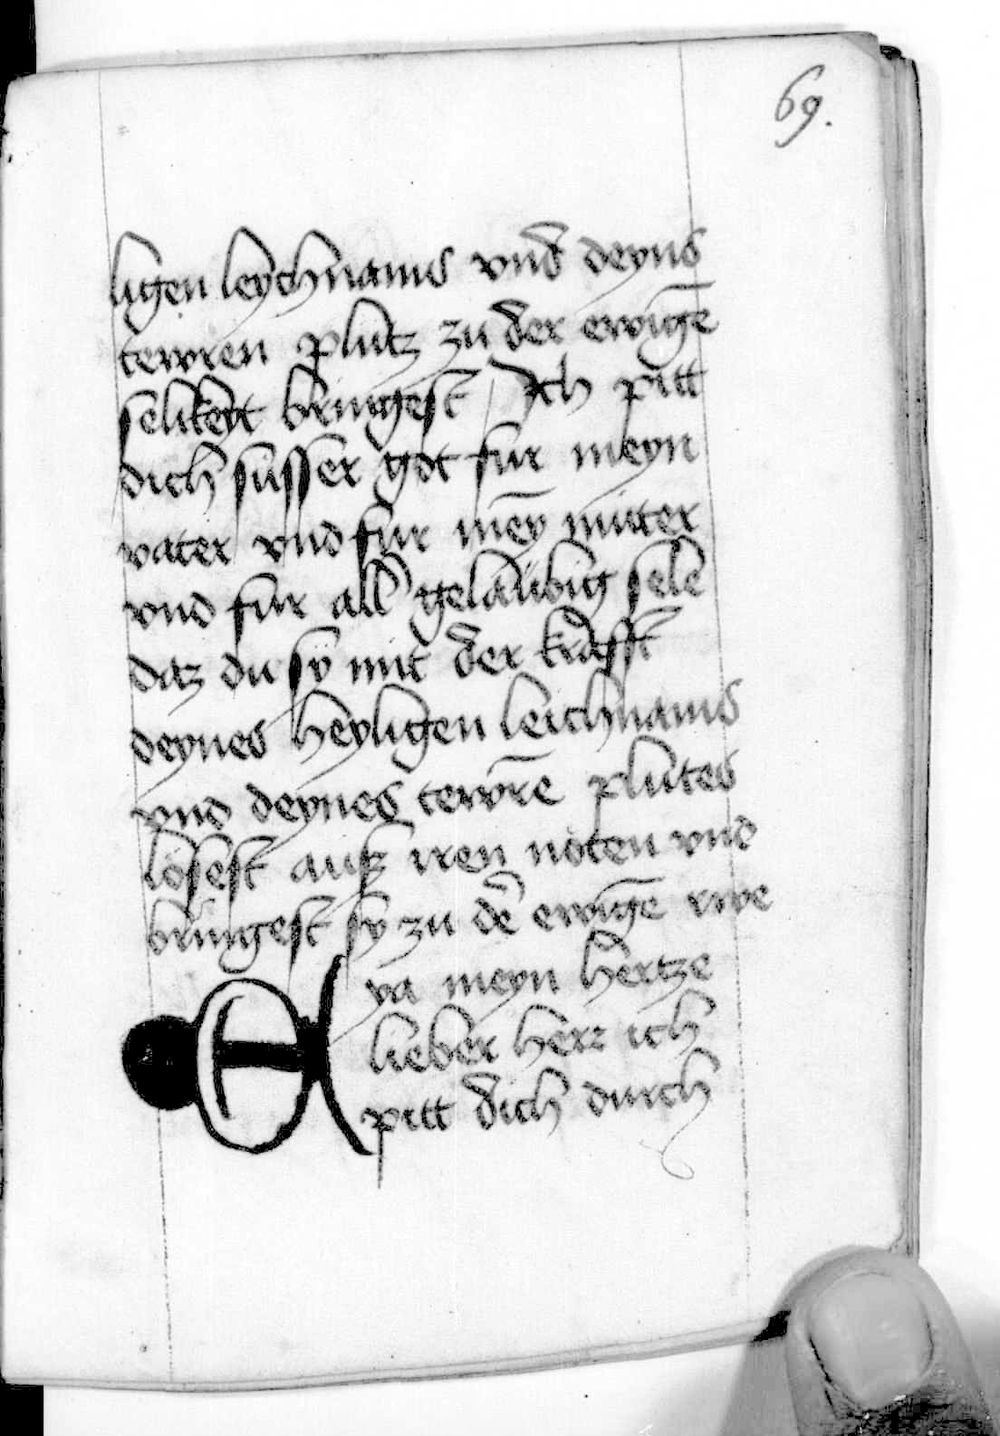 69.
ligen leychnams vnd deyns
tewren plutz zu der ewigē
selikeyt bringest / Ich pitt
dich süsser got für meyn
vater vnd für mēy muter
vnd für all gelaubig sele
daz du sy mit der krafft
deynes heyligen leichnams
vnd deynes tewrē plutes
lösest ausz iren nöten vnd
bringest sy zu dē ewigē rwe
Eya meyn hertze
lieber herr ich
pitt dich durch